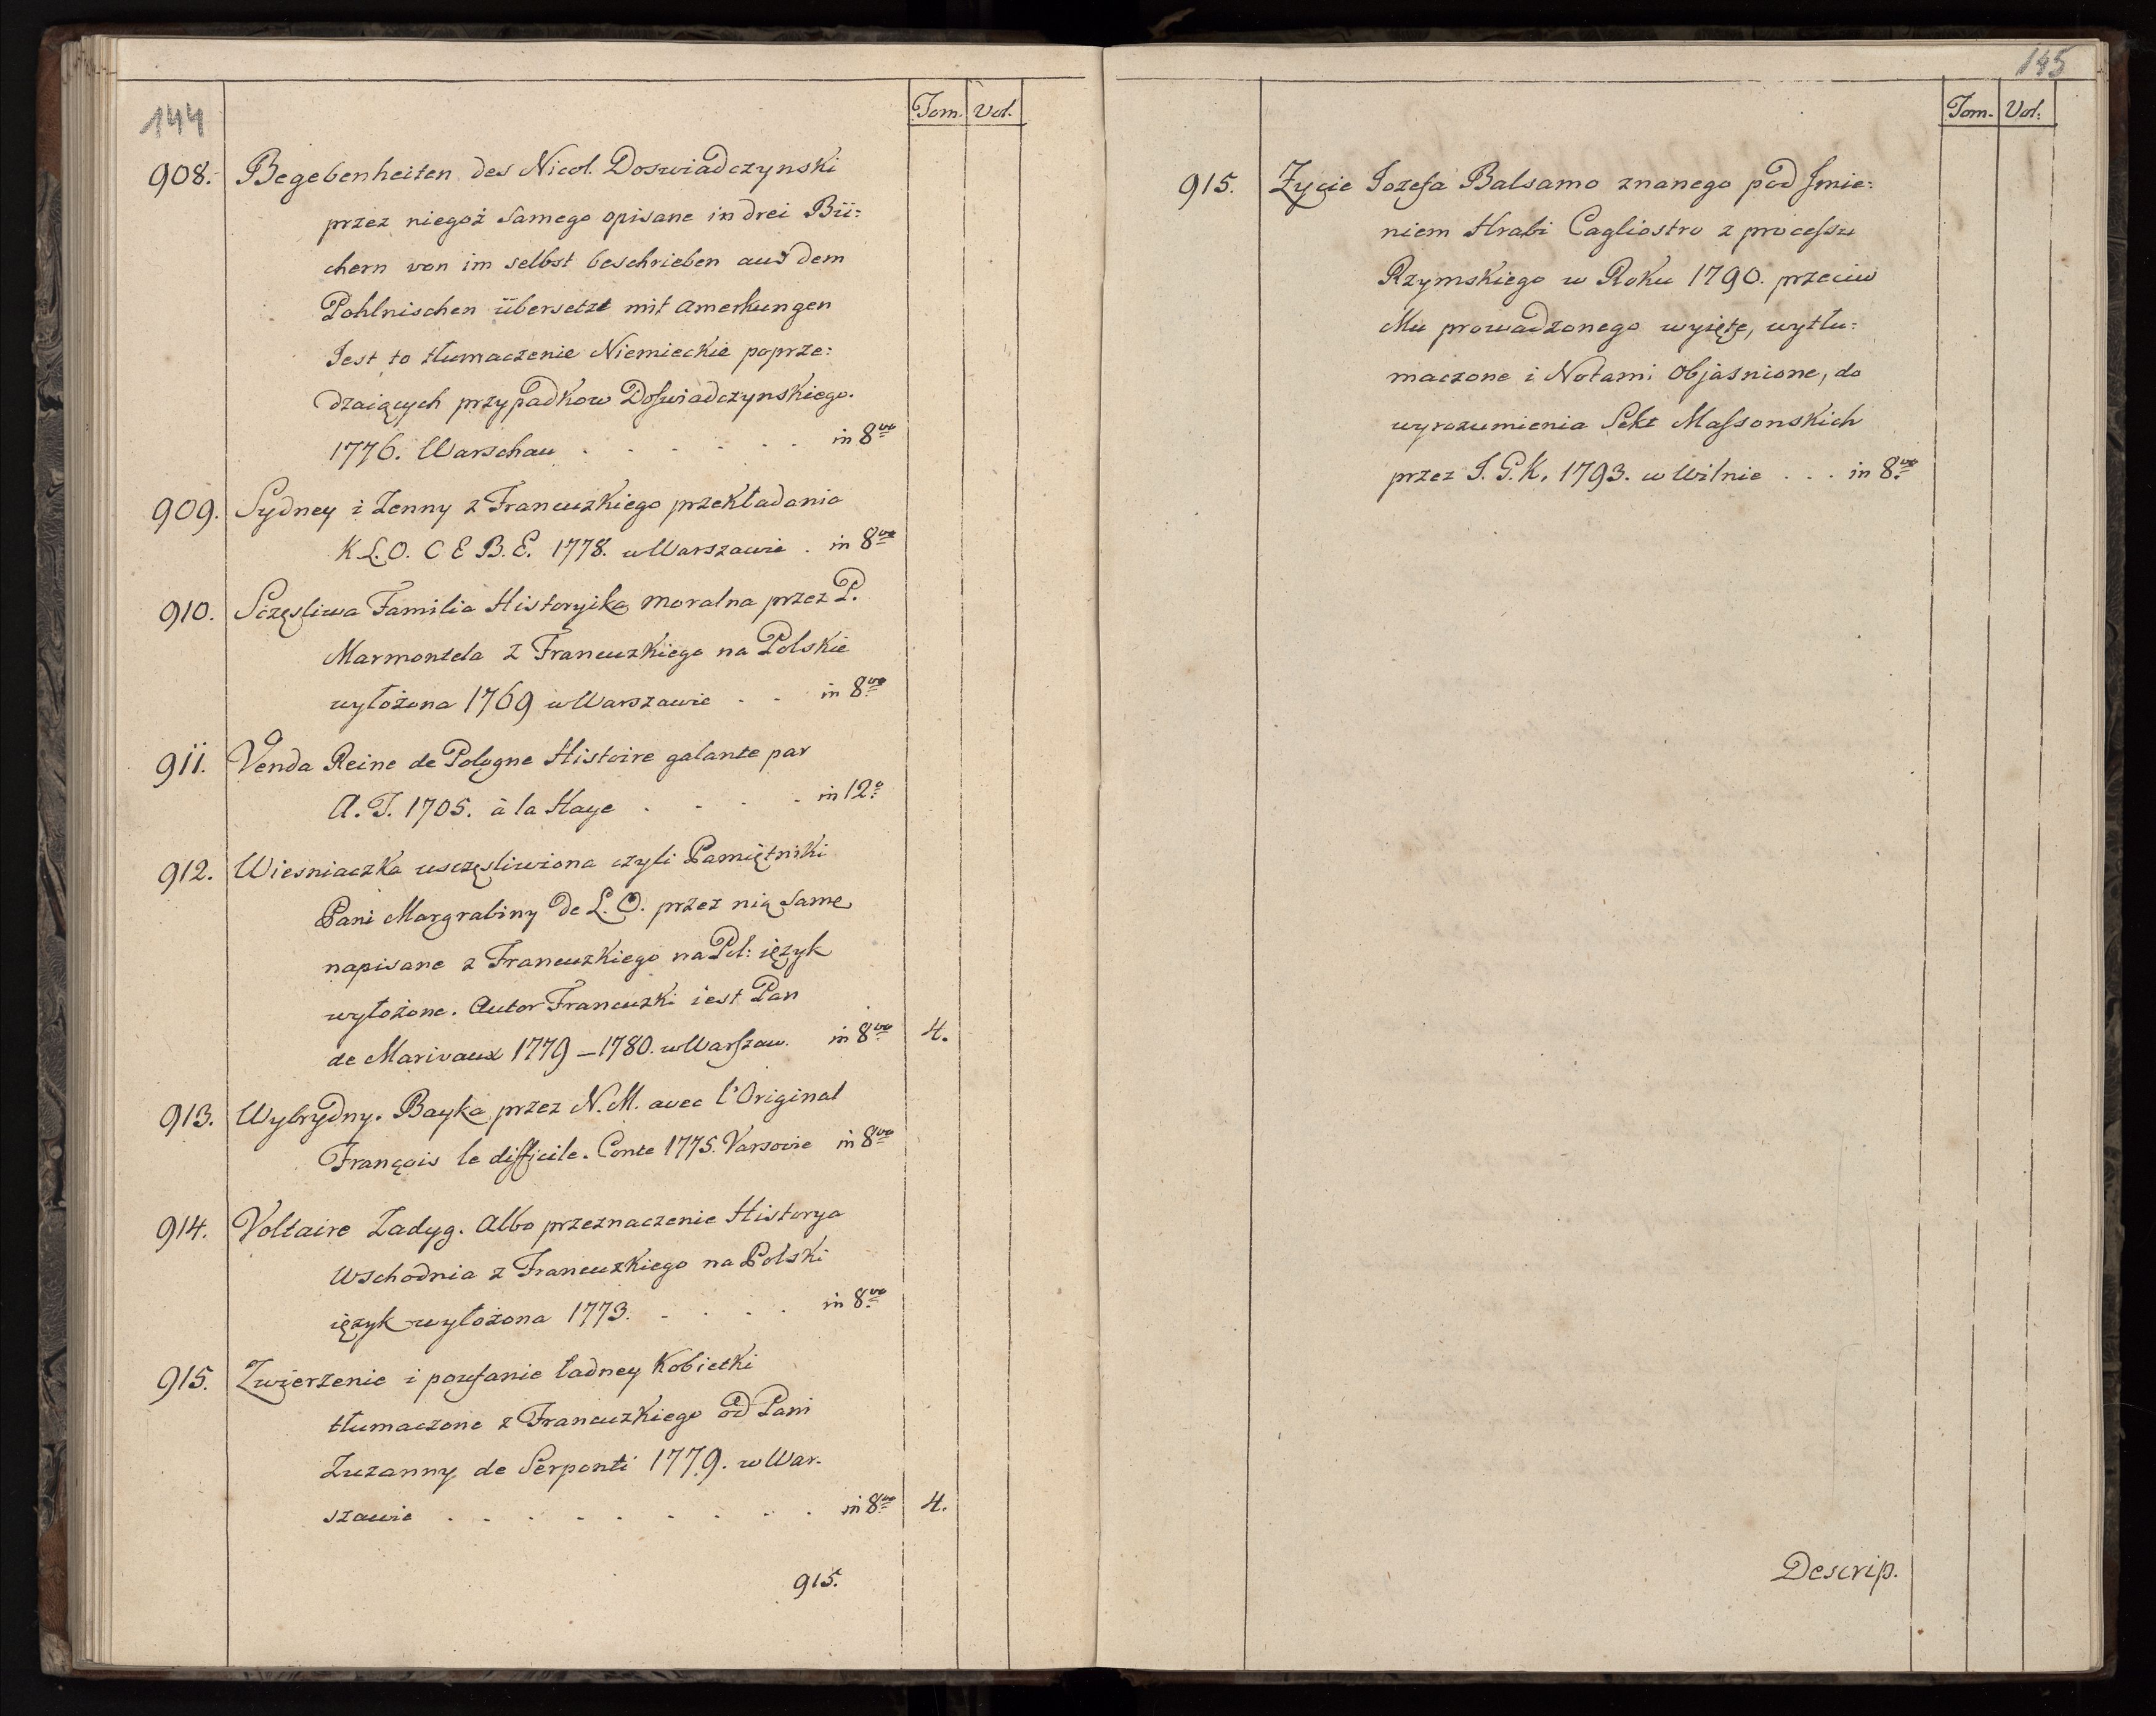 144
Tom. Vol.
908. Begebenheiten des Nicol. Doswiadczynski
przez niegoż samego opisane in drei Bü:
chern von im selbst beschrieben aus dem
Pohlnischen übersetzt mit Amerkungen
Jest to tłumaczenie Niemieckie poprze:
dzaiących przypadkow Doswiadczynskiego.
1776. Warschau . . . . . . in 8vo
909. Sydney i Zenny z Francuzkiego przekładania
K L. O. C E B. E. 1778. w Warszawie . in 8vo
910. Sczęsliwa Familia Historyika moralna przez P.
Marmontela z Francuzkiego na Polskie
wyłożona 1769 w Warszawie . . in 8vo
911. Venda Reine de Pologne Histoire galante par
A. T. 1705. à la Haye . . . . in 12o
912. Wiesniaczka usczęsliwiona czyli Pamiętniki
Pani Margrabiny de L. O. przez nią samę
napisane z Francuzkiego na Pol: ięzyk
wyłożone. Autor Francuzki iest Pan
de Marivaux 1779 – 1780. w Warszaw. in 8vo 4.
913. Wybrydny. Bayka przez N. M. avec l'Original
François le difficile. Conte 1775. Varsovie in 8vo
914. Voltaire Zadyg. Albo przeznaczenie Historya
Wschodnia z Francuzkiego na Polski
ięzyk wyłożona 1773. . . . . in 8vo
915. Zwierzenie i poufanie ładney Kobietki
tłumaczone z Francuzkiego od Pani
Zuzanny de Serponti 1779. w War.
szawie . . . . . . . . . in 8vo 4.
915.
145
Tom. Vol.
915. Zycie Jozefa Balsamo znanego pod Jmie:
niem Hrabi Cagliostro z processu
Rzymskiego w Roku 1790. przeciw
Mu prowadzonego wyięte, wytłu:
maczone i Notami objasnione, do
wyrozumienia Sekt Massonskich
przez J. G. K. 1793. w Wilnie . . . in 8vo
Descrip.